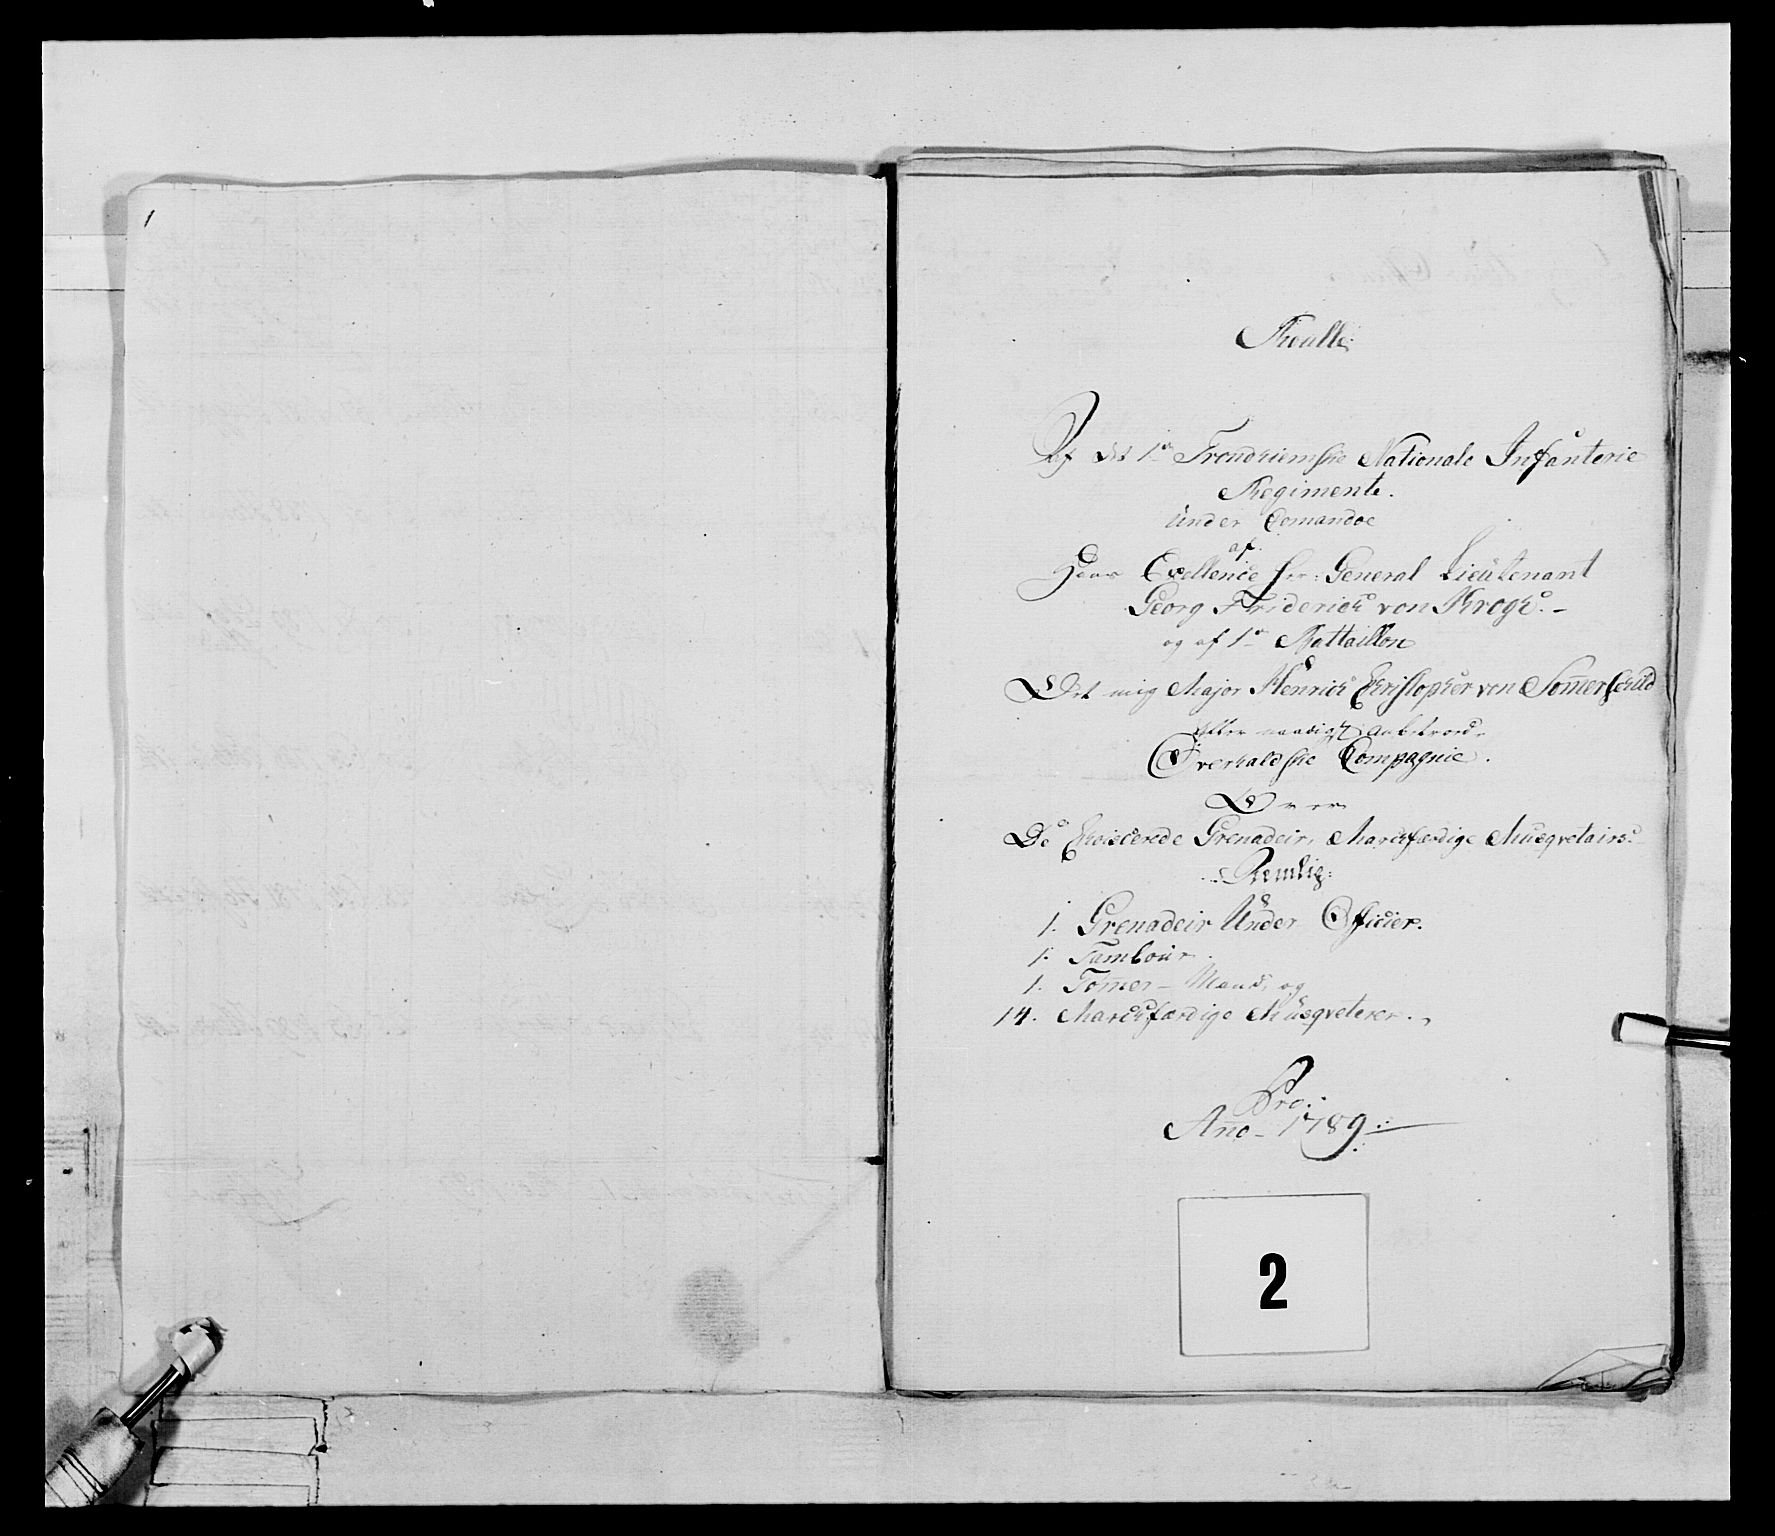 1
Roulle
Af det 1te Trondhiemske Nationale Infanterie
Regimente.
Under Comandoe
af
Hans Exellence Hr: General Lieutenant
Georg Friderich von Krogh. –
og af 1te Battaillon
Det mig Major Henrich Christopher von Somerschild
aller naadigst anbetroed.
Överhaldske Compagnie.
Over
De Choiscerede Grenadeir, Marchfærdige Musqvetairs.
Nemlig:
1. Grenadeir Under Officier.
1. Tambour.
1. Tomer-Mand, og
14. Marchfærdige Musqveterer.
Pro.
Año – 1789.
2